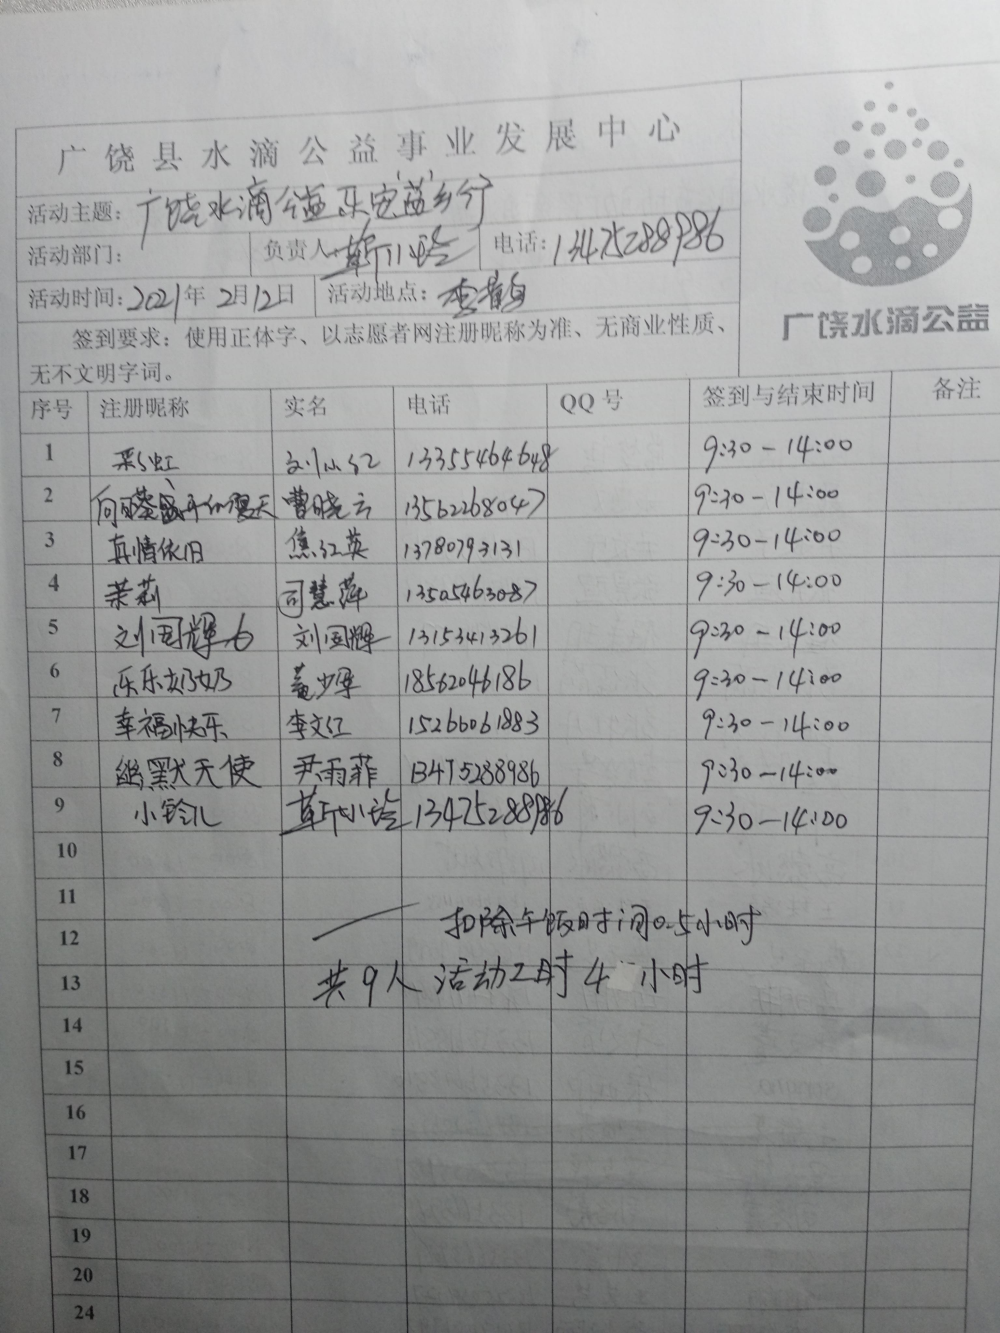 广饶县水滴公益事业发展中心
活动主题：广饶水滴公益乐安'益'乡行
活动部门： 负责人 靳小玲 电话：13475288986
活动时间：2021年2月12日 活动地点：
签到要求：使用正体字、以志愿者网注册昵称为准、无商业性质、
无不文明字词。
广饶水滴公益
序号 注册昵称 实名 电话 QQ号 签到与结束时间 备注
1 彩虹 刘小红 13355464648 9:30-14:00
2 曹晓云 13562268047 9:30-14:00
3 真情依旧 焦红英 13780793131 9:30-14:00
4 茉莉 司慧萍 13505463087 9:30-14:00
5 刘国辉 刘国辉 13153413261 9:30-14:00
6 乐乐奶奶 18562046186 9:30-14:00
7 幸福快乐 李文红 15266061883 9:30-14:00
8 幽默天使 尹雨菲 13475288986 9:30-14:00
9 小铃儿 靳小玲 13475288986 9:30-14:00
10
11
12 扣除午饭时间0.5小时
13 共9人 活动工时 4 小时
14
15
16
17
18
19
20
24